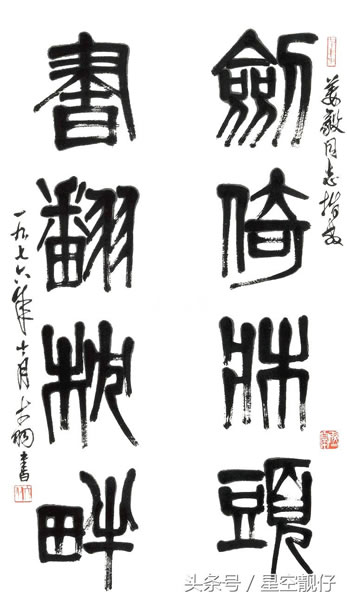 姜毅同志指教
劍倚牀頭
書翻枕畔
一九七六年十月書
头条号 / 星空靓仔